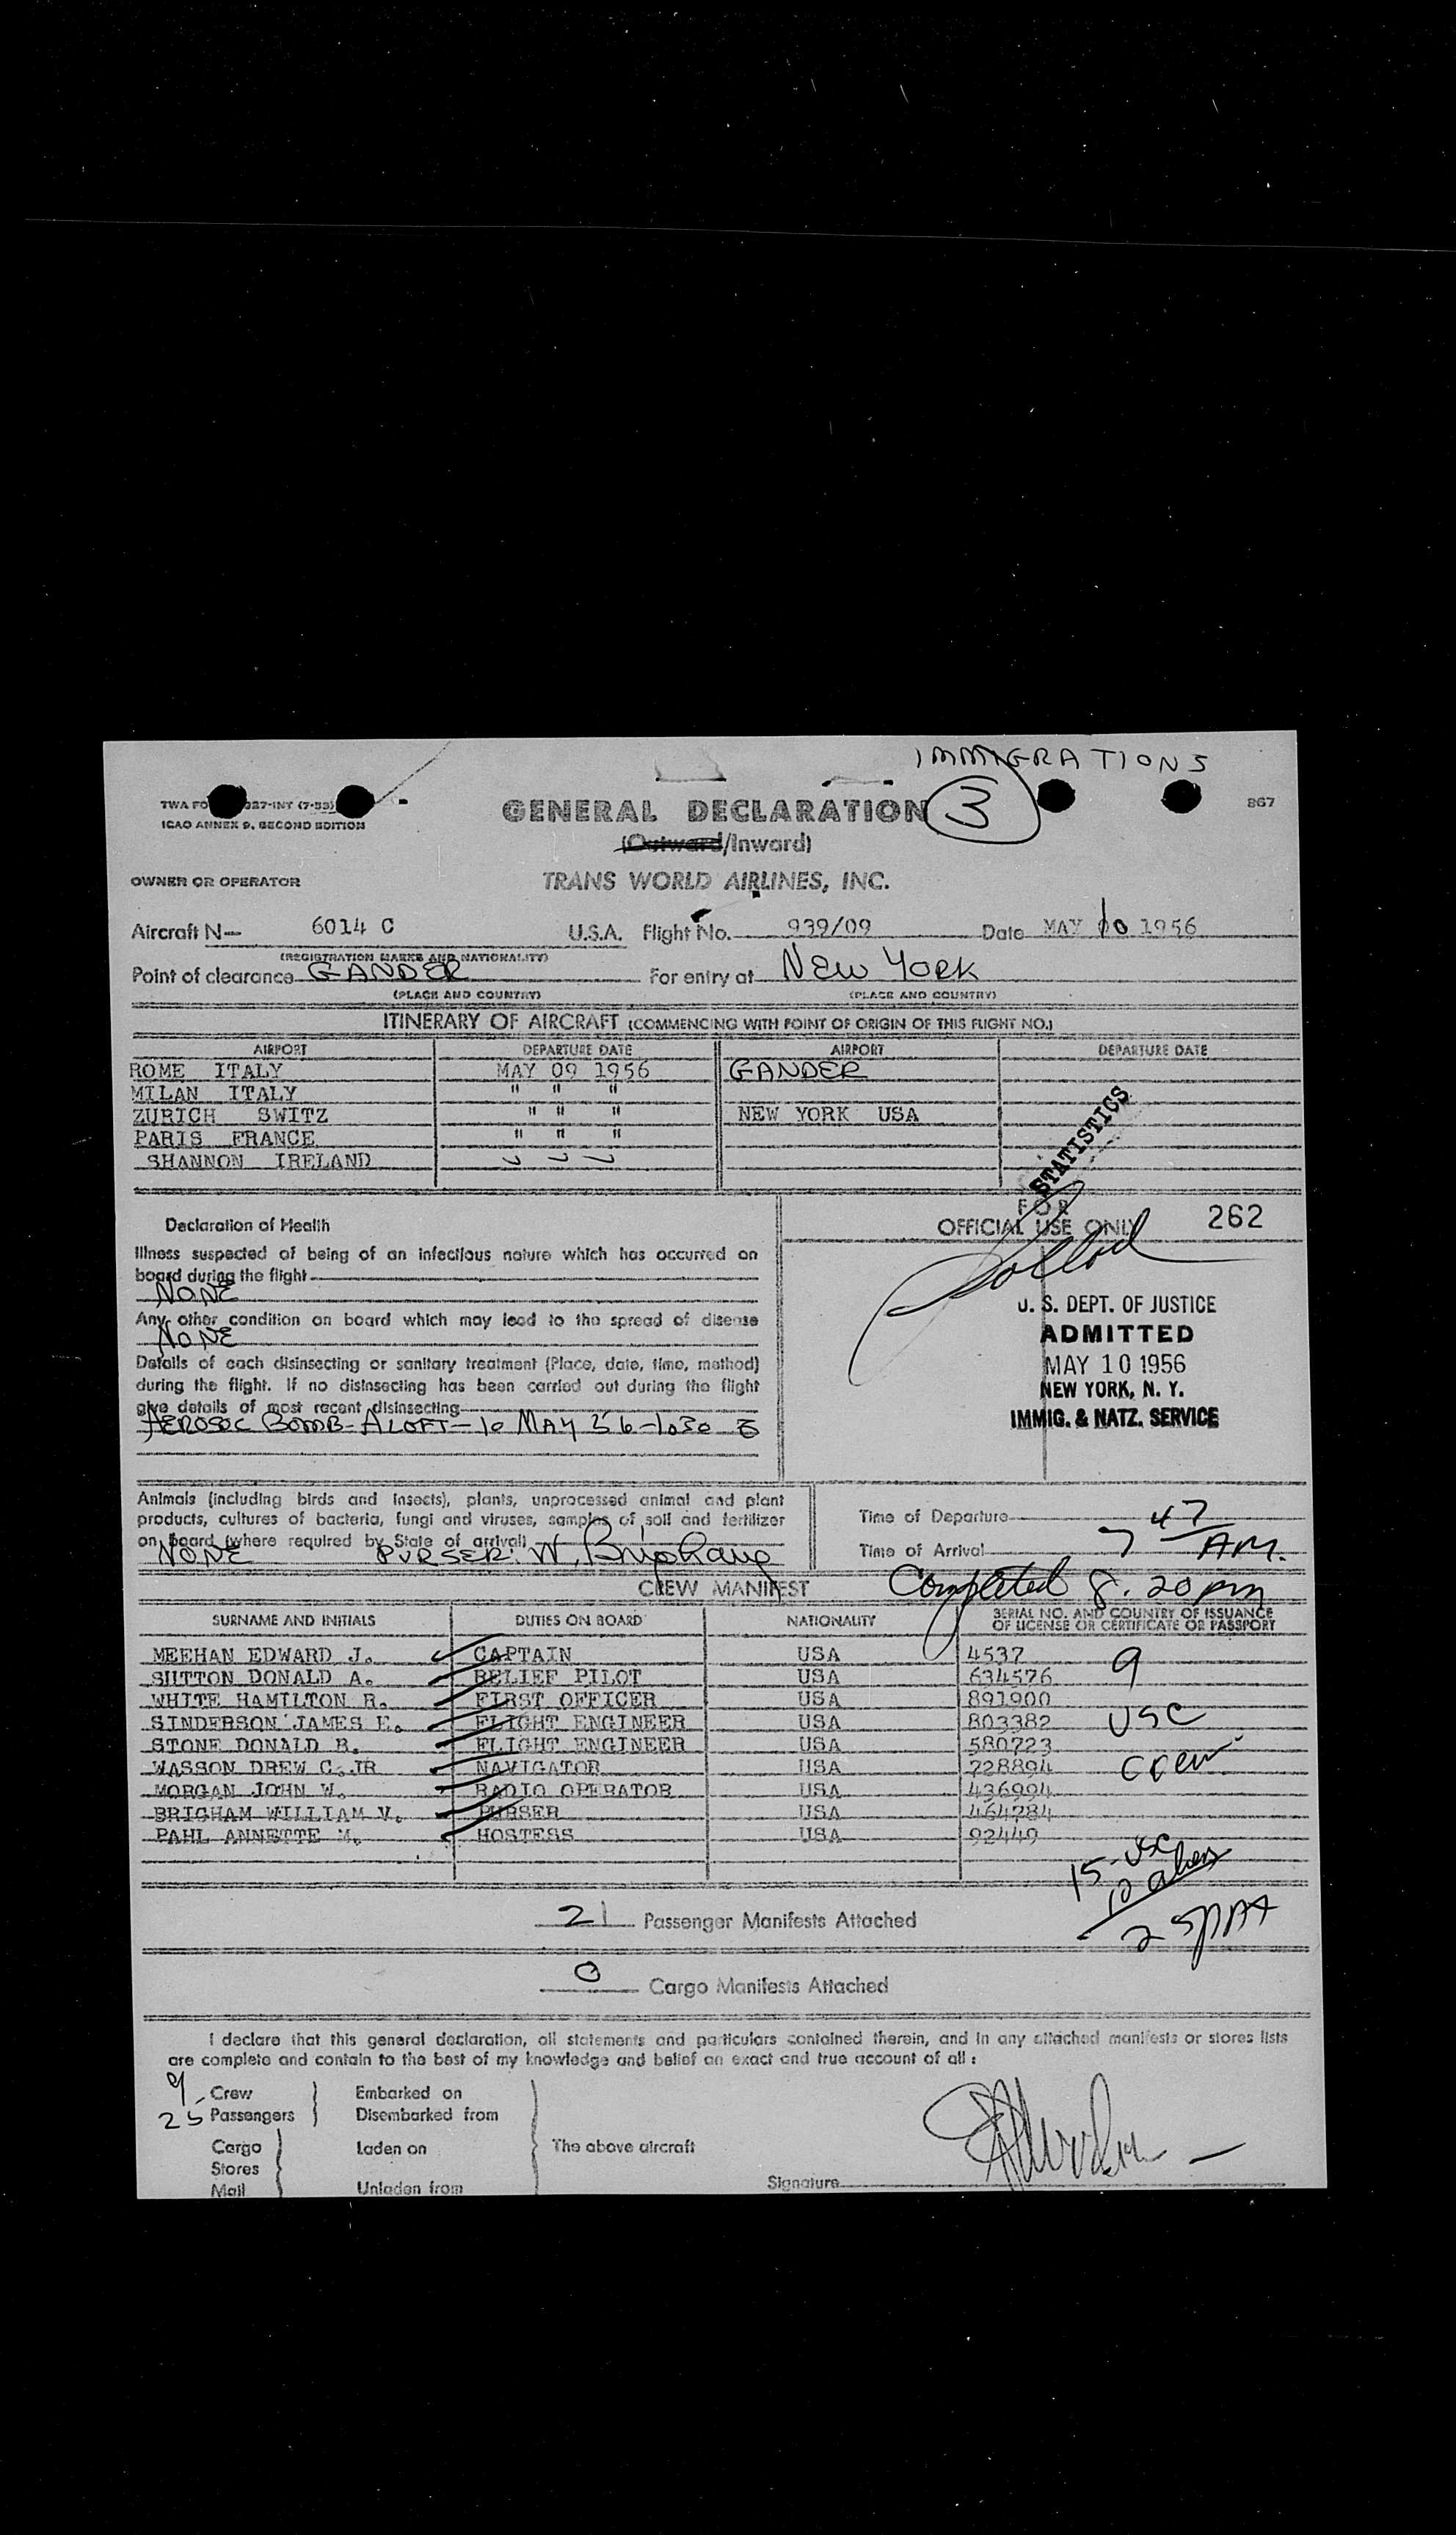 IMMIGRATIONS
TWA FO 027-INT (7-55) 867
ICAO ANNEX 9, SECOND EDITION
GENERAL DECLARATION 3
(Outward/Inward)
OWNER OR OPERATOR TRANS WORLD AIRLINES, INC.
Aircraft N— 6014 C U.S.A. Flight No. 939/09 Date MAY 10 1956
(REGISTRATION MARKS AND NATIONALITY)
Point of clearance GANDER For entry at NEW YORK
(PLACE AND COUNTRY) (PLACE AND COUNTRY)
ITINERARY OF AIRCRAFT (COMMENCING WITH POINT OF ORIGIN OF THIS FLIGHT NO.)
AIRPORT DEPARTURE DATE AIRPORT DEPARTURE DATE
ROME ITALY MAY 09 1956 GANDER
MILAN ITALY " " "
ZURICH SWITZ " " " NEW YORK USA
PARIS FRANCE " " "
SHANNON IRELAND
STATISTICS
FOR
OFFICIAL USE ONLY 262
Declaration of Health
Illness suspected of being of an infectious nature which has occurred on
board during the flight
NONE
Any other condition on board which may lead to the spread of disease
NONE
Details of each disinsecting or sanitary treatment (Place, date, time, method)
during the flight. If no disinsecting has been carried out during the flight
give details of most recent disinsecting
AEROSOL BOMB - ALOFT - 10 MAY 56 - 1030 Z
U. S. DEPT. OF JUSTICE
ADMITTED
MAY 10 1956
NEW YORK, N. Y.
IMMIG. & NATZ. SERVICE
Animals (including birds and insects), plants, unprocessed animal and plant
products, cultures of bacteria, fungi and viruses, samples of soil and fertilizer
on board (where required by State of arrival)
NONE PURSER: W. Brigham
Time of Departure
Time of Arrival 7 47 AM.
Completed 8.20 pm
CREW MANIFEST
SURNAME AND INITIALS DUTIES ON BOARD NATIONALITY SERIAL NO. AND COUNTRY OF ISSUANCE
OF LICENSE OR CERTIFICATE OR PASSPORT
MEEHAN EDWARD J. CAPTAIN USA 4537
SUTTON DONALD A. RELIEF PILOT USA 634576
WHITE HAMILTON R. FIRST OFFICER USA 891900
SINDERSON JAMES E. FLIGHT ENGINEER USA 803382
STONE DONALD B. FLIGHT ENGINEER USA 580723
WASSON DREW C. JR NAVIGATOR USA 728894
MORGAN JOHN W. RADIO OPERATOR USA 436994
BRIGHAM WILLIAM V. PURSER USA 464784
PAHL ANNETTE M. HOSTESS USA 92449
9
USC
crew
15-USC
10 aliens
25
21 Passenger Manifests Attached
0 Cargo Manifests Attached
I declare that this general declaration, all statements and particulars contained therein, and in any attached manifests or stores lists
are complete and contain to the best of my knowledge and belief an exact and true account of all :
9 Crew Embarked on
25 Passengers Disembarked from
Cargo Laden on The above aircraft
Stores
Mail Unladen from
Signature